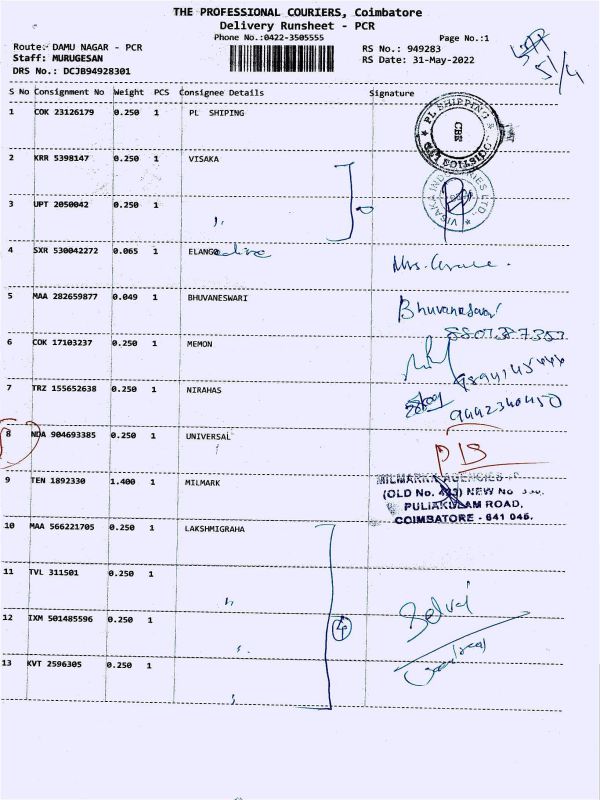 THE PROFESSIONAL COURIERS, Coimbatore
Delivery Runsheet - PCR
Phone No.:0422-3505555 Page No.:1
Route: DAMU NAGAR - PCR RS No.: 949283
Staff: MURUGESAN RS Date: 31-May-2022
DRS No.: DCJB94928301
S No Consignment No Weight PCS Consignee Details Signature
1 COK 23126179 0.250 1 PL SHIPING
PL SHIPPING & LOGISTICS LTD
CBE
2 KRR 5398147 0.250 1 VISAKA
VISAKA INDUSTRIES LTD.
3 UPT 2050042 0.250 1 "
4 SXR 530042272 0.065 1 ELANGO
Mrs. Grace.
5 MAA 282659877 0.049 1 BHUVANESWARI
Bhuvaneswari
6 COK 17103237 0.250 1 MEMON
7 TRZ 155652638 0.250 1 NIRAHAS
9442340450
8 NDA 904693385 0.250 1 UNIVERSAL
9 TEN 1892330 1.400 1 MILMARK
MILMARK AGENCIES
(OLD No. 423) NEW No
PULIAKULAM ROAD,
COIMBATORE - 641 045.
10 MAA 566221705 0.250 1 LAKSHMIGRAHA
11 TVL 311501 0.250 1 "
12 IXM 501485596 0.250 1 " 4 Selvi
13 KVT 2596305 0.250 1 "